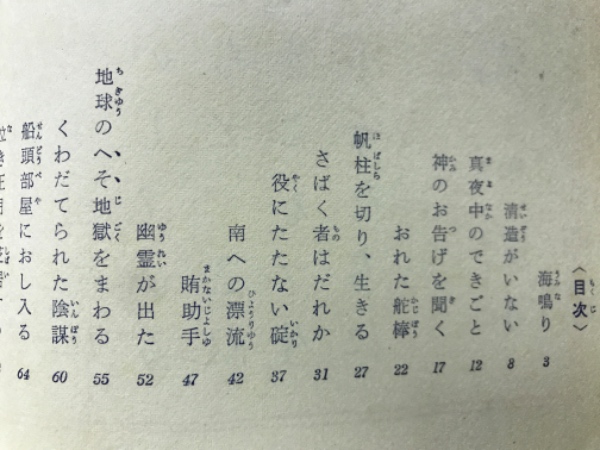 〈目次〉
海鳴り 3
清造がいない 8
真夜中のできごと 12
神のお告げを聞く 17
おれた舵棒 22
帆柱を切り、生きる 27
さばく者はだれか 31
役にたたない碇 37
南への漂流 42
賄助手 47
幽霊が出た 52
地球のへそ地獄をまわる 55
くわだてられた陰謀 60
船頭部屋におし入る 64